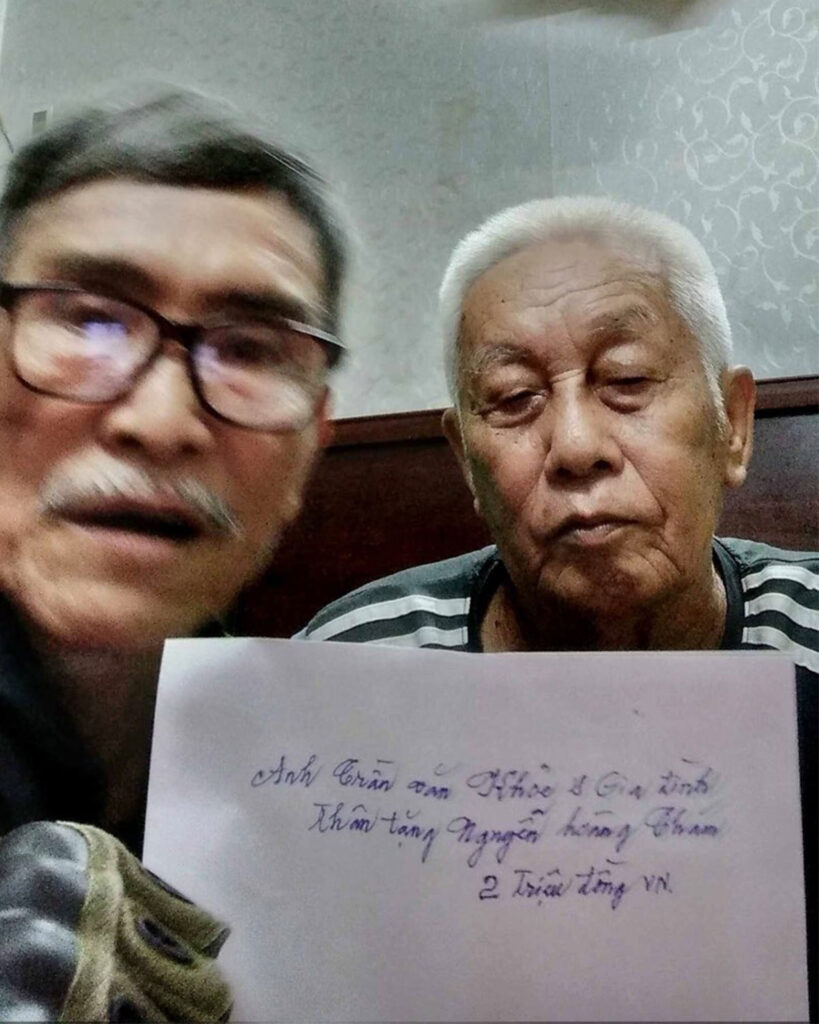 Anh Trần văn Khỏe & Gia đình
Thân tặng Nguyễn hoàng Thám
2 Triệu đồng VN.